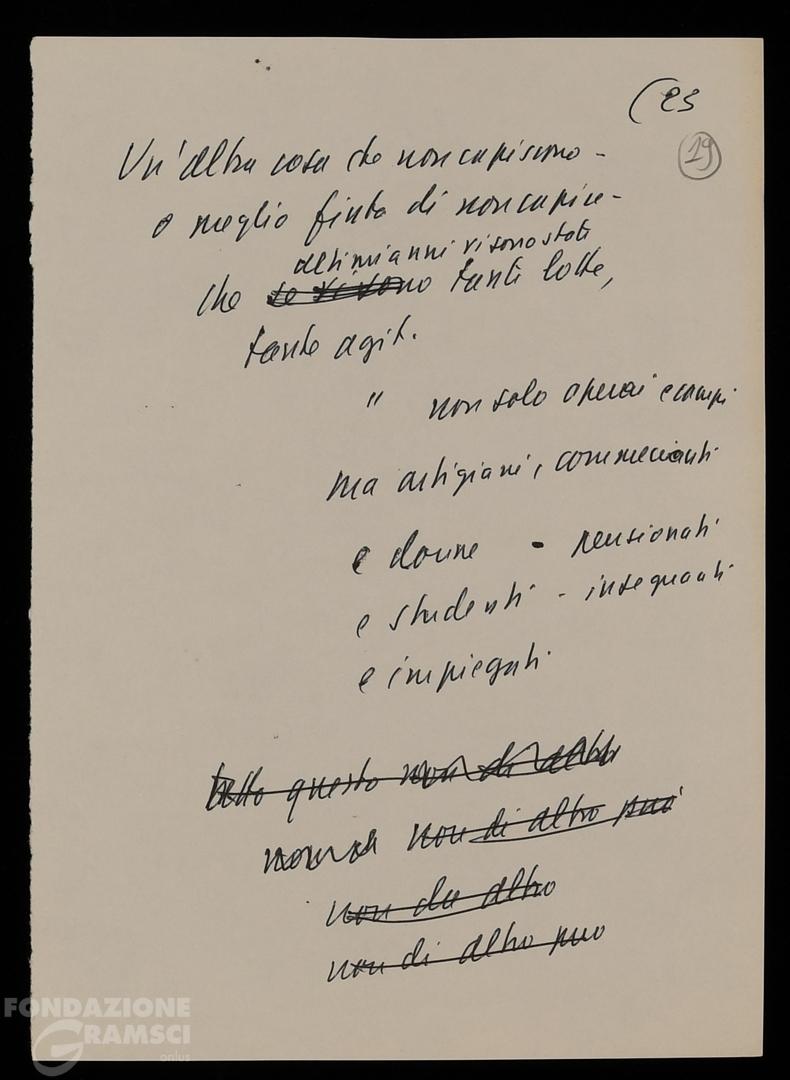 (25
19
Un'altra cosa che non capiscono -
o meglio finta di non capire -
ultimi anni vi sono stati
che se vi sono tante lotte,
tante agit.
" non solo operai e camp.
ma artigiani, commercianti
e donne - pensionati
e studenti - insegnanti
e impiegati
tutto questo non di altro
non di altro può
non da altro
non di altro può
FONDAZIONE
GRAMSCI
onlus